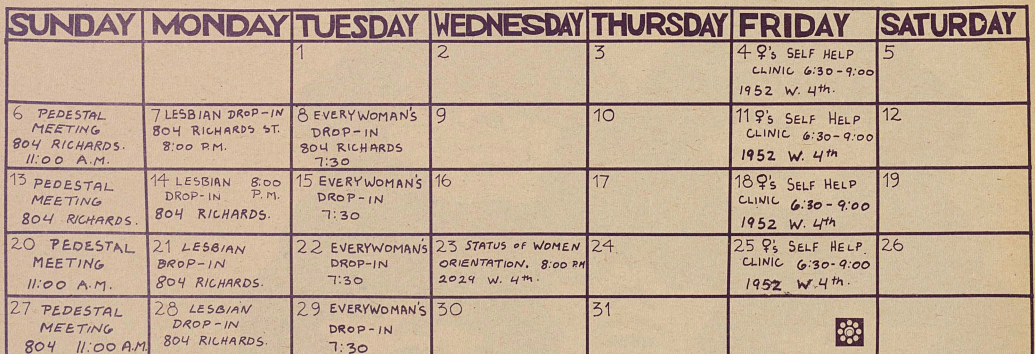 SUNDAY MONDAY TUESDAY WEDNESDAY THURSDAY FRIDAY SATURDAY
1
2
3
4 ♀'s SELF HELP
CLINIC 6:30-9:00
1952 W. 4th.
5
6 PEDESTAL
MEETING
804 RICHARDS.
11:00 A.M.
7 LESBIAN DROP-IN
804 RICHARDS ST.
8:00 P.M.
8 EVERYWOMAN'S
DROP-IN
804 RICHARDS
7:30
9
10
11 ♀'s SELF HELP
CLINIC 6:30-9:00
1952 W. 4th
12
13 PEDESTAL
MEETING
804 RICHARDS.
14 LESBIAN 8:00
DROP-IN P.M.
804 RICHARDS.
15 EVERYWOMAN'S
DROP-IN
7:30
16
17
18 ♀'s SELF HELP
CLINIC 6:30-9:00
1952 W. 4th
19
20 PEDESTAL
MEETING
11:00 A.M.
21 LESBIAN
DROP-IN
804 RICHARDS.
22 EVERYWOMAN'S
DROP-IN
7:30
23 STATUS OF WOMEN
ORIENTATION. 8:00 PM
2029 W. 4th.
24
25 ♀'s SELF HELP
CLINIC 6:30-9:00
1952 W. 4th.
26
27 PEDESTAL
MEETING
804 11:00 A.M.
28 LESBIAN
DROP-IN
804 RICHARDS.
29 EVERYWOMAN'S
DROP-IN
7:30
30
31